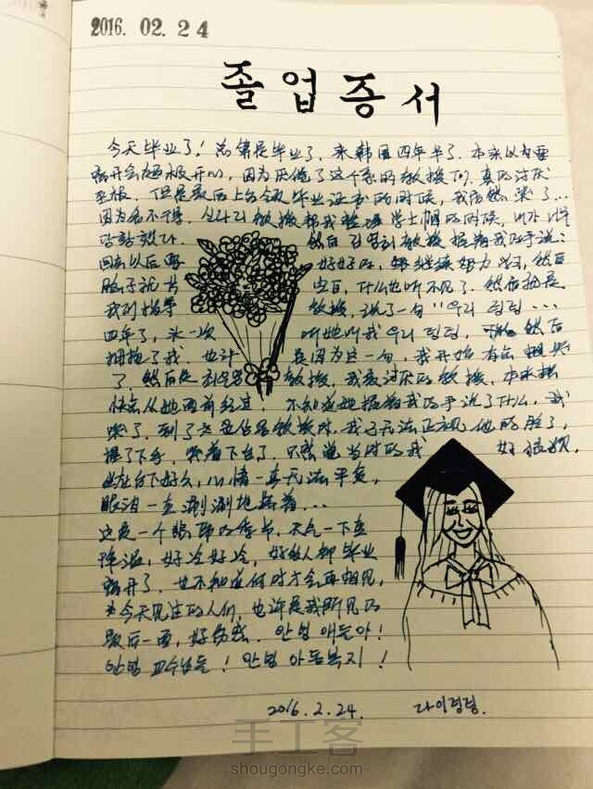 2016. 02. 24
졸업증서
今天毕业了！总算是毕业了，来韩国四年半了。本来以为要
离开会极开心，因为厌倦了这个系的教授们，真的讨厌
至极。但是最后上台领毕业证书的时候，我居然哭了...
因为舍不得。教授帮我整理学士帽的时候，내가 너무
然后 教授握着我的手说：
回去以后要 好好的，继续努力学习，然后
脑子就 空白，什么也听不见了。然后抱是
我的指导 教授，说了一句 "우리 팅팅...
四年了，头一次 听她叫我 우리 팅팅，然后
拥抱了我。也许 是因为这一句，我开始有点想哭
了。然后是 教授，我最讨厌的教授，本来想
快点从她面前经过，不知道她握着我的手说了什么，我
哭了。到了 教授时，我已无法正视他的脸了，
握了下手，哭着下台了。只知道当时的我 好狼狈，
坐在台下好久，心情一直无法平复，
眼泪一直涮涮地掉着...
这是一个悲聊的季节，天气一下子
降温，好冷好冷，好些人都毕业
离开了，也不知道何时才会再相见，
今天见过的人们，也许是我所见的
最后一面，好伤感。안녕 얘들아！
안녕 교수님들！안녕 아동복지！
2016.2.24. 다이팅팅.
手工客
shougongke.com